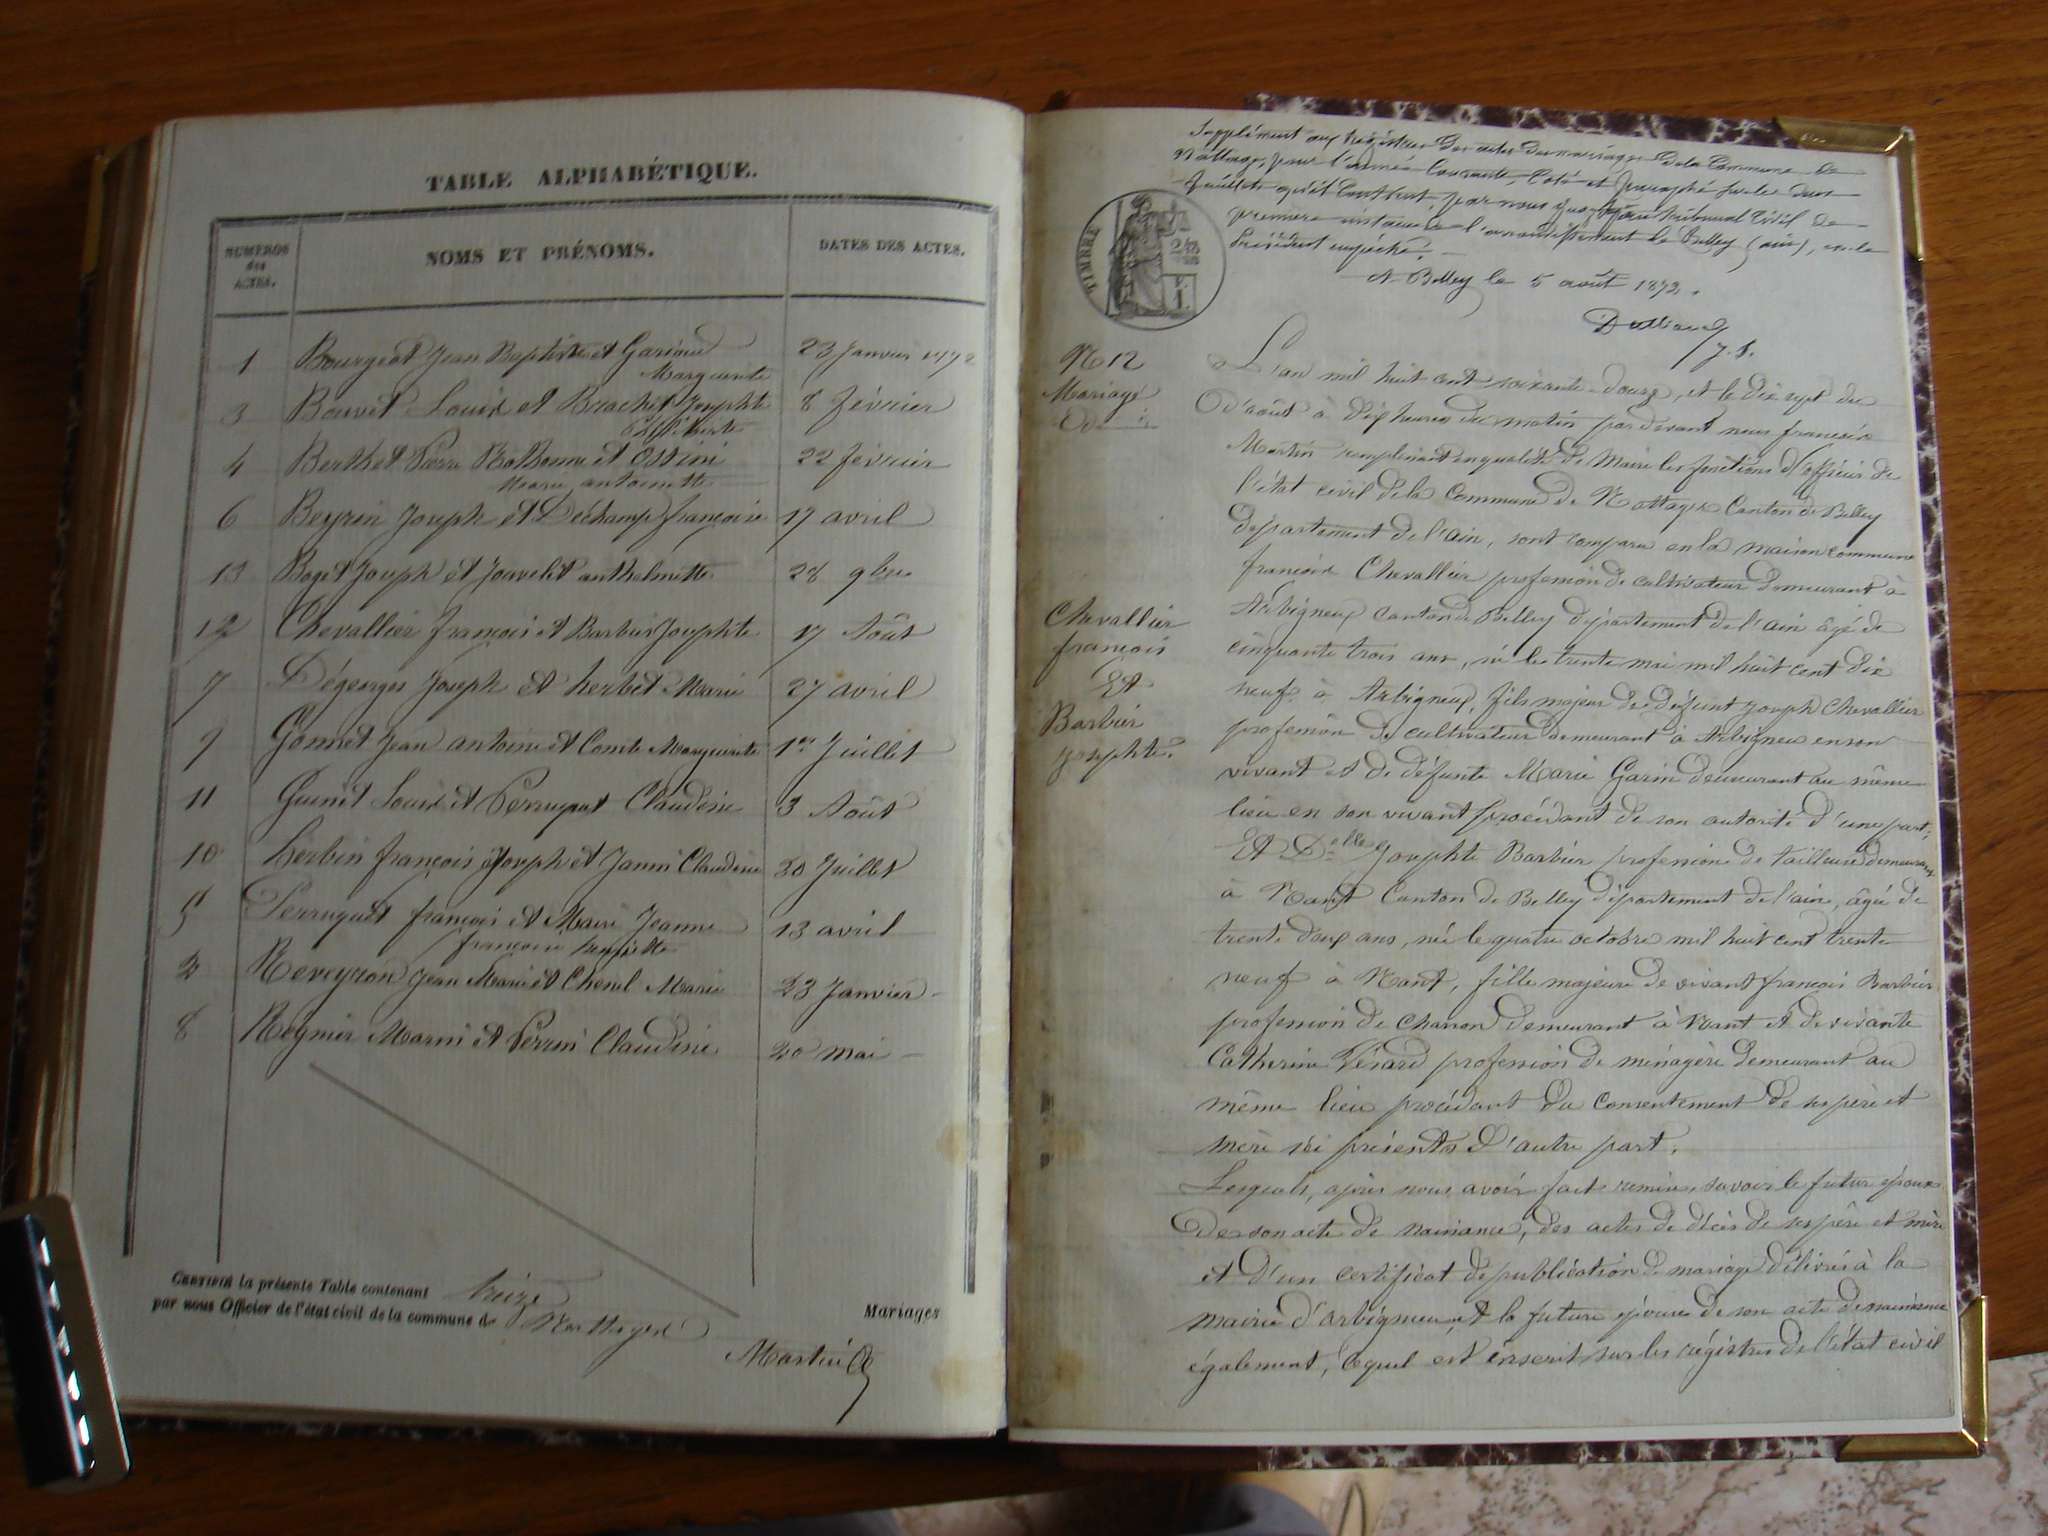 TABLE ALPHABÉTIQUE.
NUMÉROS des ACTES.
NOMS ET PRÉNOMS.
DATES DES ACTES.
1 Bourgeat Jean Baptiste et Garioud 23 Janvier 1872
Marguerite
3 Bouvet Louis et Brachet Josephte 8 février
Philiberte
4 Berthet Pierre et Ossini 22 février
Marie antoinette
6 Beyrin Joseph et Déchamp françoise 17 avril
13 Boget Joseph et Jouvelet anthelmette 28 9bre
12 Chevallier françois et Barbier Josephte 17 Août
7 Dégeorges Joseph et herbet Marie 27 avril
9 Gonnet Jean antoine et Comte Marguerite 1er Juillet
11 Guinet Louis et Perruquet Claudine 3 Août
10 herbin françois Joseph et Janin Claudine 20 Juillet
5 Perruquet françois et Marie Jeanne 13 avril
françoise
2 Reveyron Jean Marie et Chenel Marie 23 Janvier
8 Reynier Marin et Perrin Claudine 20 mai
CERTIFIÉ la présente Table contenant treize Mariages
par nous Officier de l'état civil de la commune de Nattages
Martin
Supplément aux registres des actes de mariages de la Commune de
Nattages, pour l'année courante, coté et paraphé sur les deux
feuillets qu'il contient, par nous Juge au tribunal Civil de
première instance de l'arrondissement de Belley (ain), en le
Président empêché.
A Belley le 5 août 1872.
TIMBRE
N° 12
Mariage
L'an mil huit cent soixante-douze, et le dix sept du
d'août à dix heures du matin pardevant nous françois
Martin remplissant en qualité de Maire les fonctions d'officier de
l'état civil de la Commune de Nattages Canton de Belley
département de l'ain, sont comparu en la maison commune
françois Chevallier profession de cultivateur demeurant à
Chevallier
françois
Et
Barbier
Josephte.
Arbigneu canton de Belley département de l'ain âgé de
cinquante trois ans, né le trente mai mil huit cent dix
neuf à Arbigneu, fils majeur de défunt Joseph Chevallier
profession de cultivateur demeurant à Arbigneu en son
vivant et de défunte Marie Garin demeurant au même
lieu en son vivant procédant de son autorité d'une part,
Et Delle Josephte Barbier profession de tailleuse demeurant
à Nant Canton de Belley département de l'ain, âgée de
trente deux ans, née le quatre octobre mil huit cent trente
neuf à Nant, fille majeure de vivant françois Barbier
profession de charron demeurant à Nant et de vivante
Catherine Vérard profession de ménagère demeurant au
même lieu procédant du consentement de ses père et
mère ici présents d'autre part.
Lesquels, après nous avoir fait remise, savoir le futur époux
de son acte de naissance, des actes de décès de ses père et mère
et d'un certificat de publication de mariage délivré à la
mairie d'arbigneu et la future épouse de son acte de naissance
également, lequel est inscrit sur les régistres de l'état civil